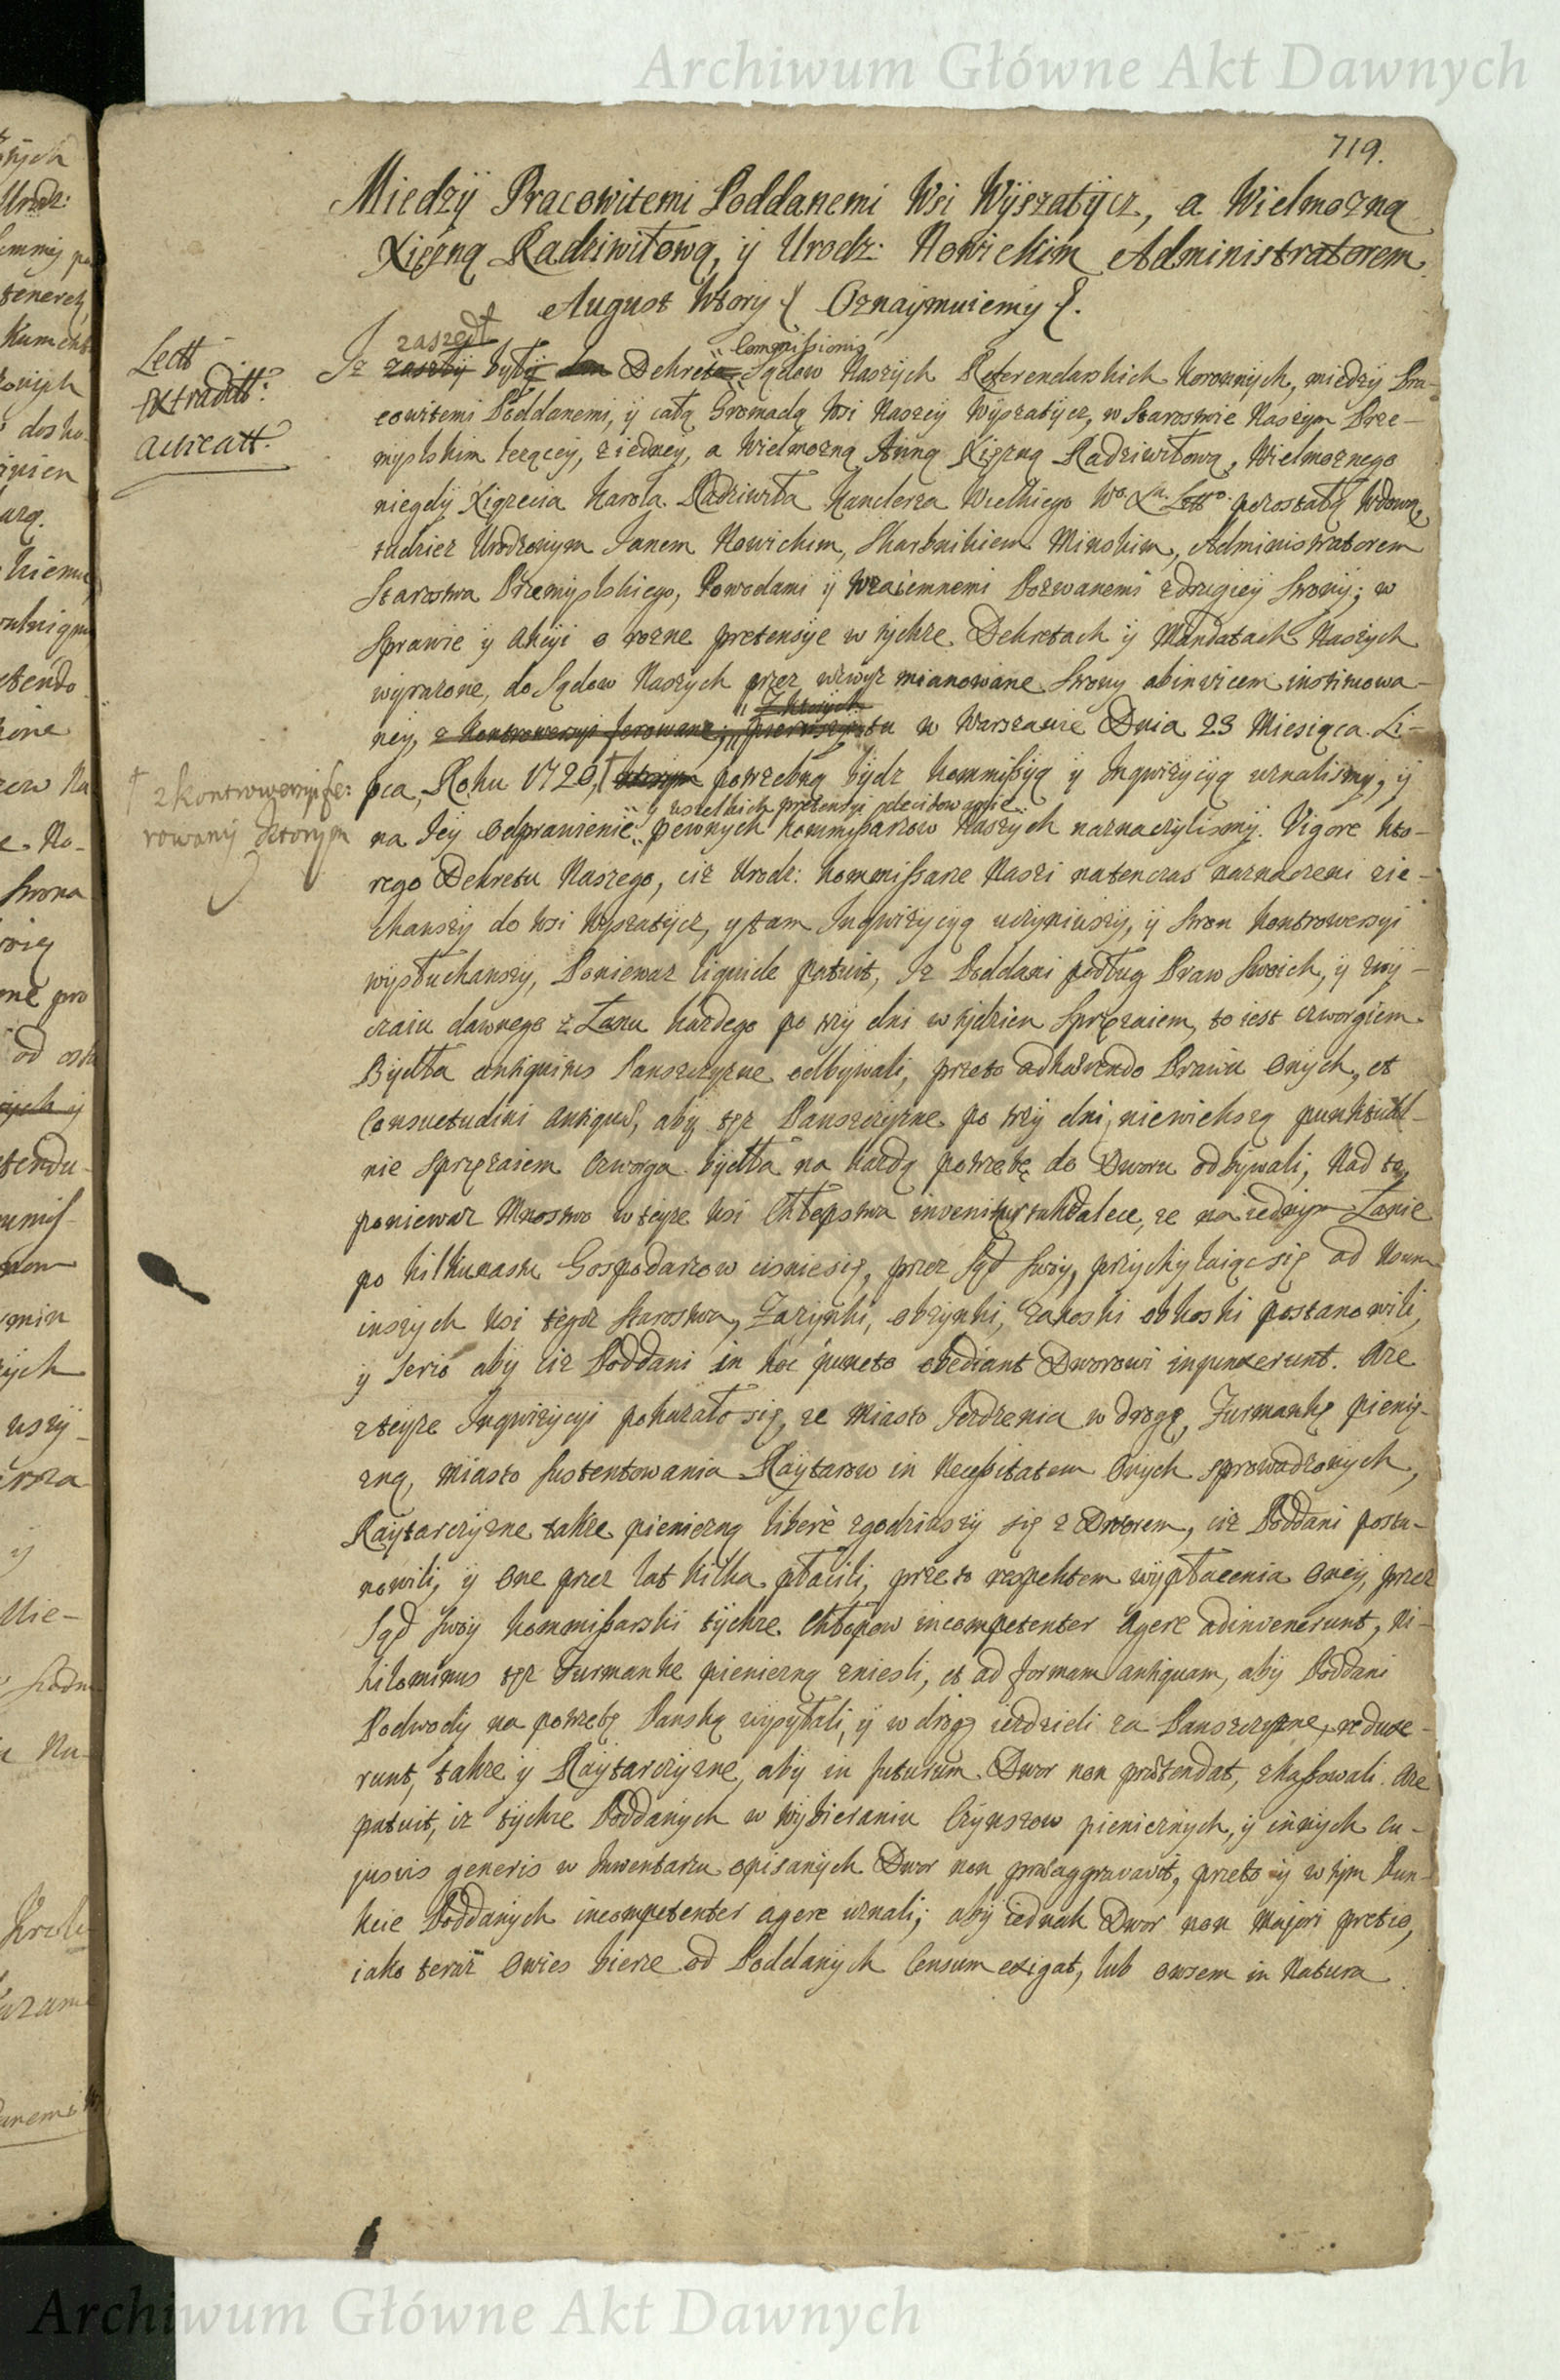 Archiwum Główne Akt Dawnych
719.
Miedzÿ Pracowitemi Poddanemi Wsi Wÿszatÿcz, a Wielmozną
Xięzną Radziwiłową, ÿ Urodz: Nowickim Administratorem
August Wtorÿ Oznaÿmuiemÿ
Lectt
Extraditt:
aureatt:
zaszedł
Commissionis
Iz zaszłÿ bÿłÿ Dekreta Sądow Naszÿch Referendarskich Koronnÿch, miedzÿ Pra-
cowitemi Poddanemi, ÿ całą Gromadą Wsi Naszeÿ Wÿszatÿcz, w Starostwie Naszÿm Prze-
mÿslskim lezącej, z iedneÿ, a Wielmozną Anną Xięzną Radziwiłową, Wielmoznego
niegdÿ Xiązecia Karola Radziwiła Kanclerza Wielkiego Wo. Xa. Litto. pozostałą Wdową,
tudziez Urodzonÿm Janem Nowickim, Skarbnikiem Minskim, Administratorem
Starostwa Przemÿslskiego, Powodami ÿ Wzaiemnemi Pozwanemi z drugieÿ Stronÿ; w
Sprawie ÿ Akcÿi o rozne pretensÿe w tÿchze Dekretach ÿ Mandatach Naszÿch
wÿrazone, do Sądow Naszÿch przez wzwÿz mianowane Stronÿ abinvicem instituowa-
Z ktorÿch
neÿ, z kontrowersÿi ferowane, pierwszÿ tu w Warszawie Dnia 23 Miesiąca Li-
† z kontrowersÿi fe:
rowanÿ ktorym
pca, Roku 1720, † ktorÿm potrzebną bÿdz Kommissÿą ÿ Inqwizÿcÿą uznalismÿ, ÿ
ÿ wszelkich pretensÿi decidowanie
na Ieÿ odprawienie pewnÿch Kommissarzow Naszÿch naznaczÿlismÿ. Vigore kto-
rego Dekretu Naszego, ciz Urodz: Kommissarze Nasi natenczas naznaczeni zie-
chawszÿ do Wsi Wÿszatÿcz, ÿ tam Inqwizÿcÿą uczÿniwszÿ, ÿ Stron Kontrowersÿi
wÿsłuchawszÿ, Poniewaz liquide patuit, Iz Poddani podług Praw Swoich, ÿ zwÿ-
czaiu dawnego z Łanu kazdego po trzÿ dni w tÿdzien Sprzęzaiem, to iest czworgiem
Bÿdła antiquitus Panszczÿzne odbÿwali, przeto adhaerendo Prawu onÿch, et
Consuetudini antiquae, abÿ tęz Panszczÿzne po trzÿ dni, niewiekszą punktual-
nie Sprzęzaiem Czworga bÿdła na kazdą potrzebę do Dworu odbÿwali, Nad to,
poniewaz Mnostwo w teÿze Wsi Chłopstwa invenitur takdalece, ze na iednÿm Łanie
po kilkunastu Gospodarzow cisnie się, przez Sąd Swoÿ, przÿchÿlaiąc się ad Usum
inszÿch Wsi tegoz Starostwa, Zazÿnki, obzÿnki, zakoski obkoski postanowili,
ÿ Serio abÿ ciz Poddani in hoc puncto obediant Dworowi injunxerunt. Aze
z teÿze Inqwizÿcÿi pokazało się, ze Miasto Jezdzenia w drogę, Furmankę pienię-
zną, Miasto Sustentowania Raÿtarow in Necessitatem Onÿch sprowadzonÿch,
Raÿtarczÿzne takze pieniezną liberè zgodziwszÿ się z Dworem, ciz Poddani posta-
nowili, ÿ one przez lat kilka płacili, przeto respektem wÿpłacenia oneÿ, przez
Sąd Swoÿ Kommissarski tÿchze Chłopow incompetenter agere adinvenerunt, Ni-
hilominus tęz Furmankę pieniezną zniesli, et ad formam antiquam, abÿ Poddani
Podwodÿ na potrzebę Panską wÿsÿłali, ÿ w drogę iezdzieli za Panszczÿzne, reduxe-
runt, takze ÿ Raÿtarczÿzne, abÿ in futurum Dwor non praetendat, skassowali. Aze
patuit, iz tÿchze Poddanÿch w Wÿbieraniu Czÿnszow pienieznÿch, ÿ innÿch cu-
jusvis generis w Inwentarzu opisanÿch Dwor non praeaggravavit, przeto ÿ w tÿm Pun-
kcie Poddanÿch incompetenter agere uznali; abÿ iednak Dwor non Majori pretio,
iako teraz Owies bierze od Poddanÿch Censum exigat, lub owsem in Natura
Archiwum Główne Akt Dawnych